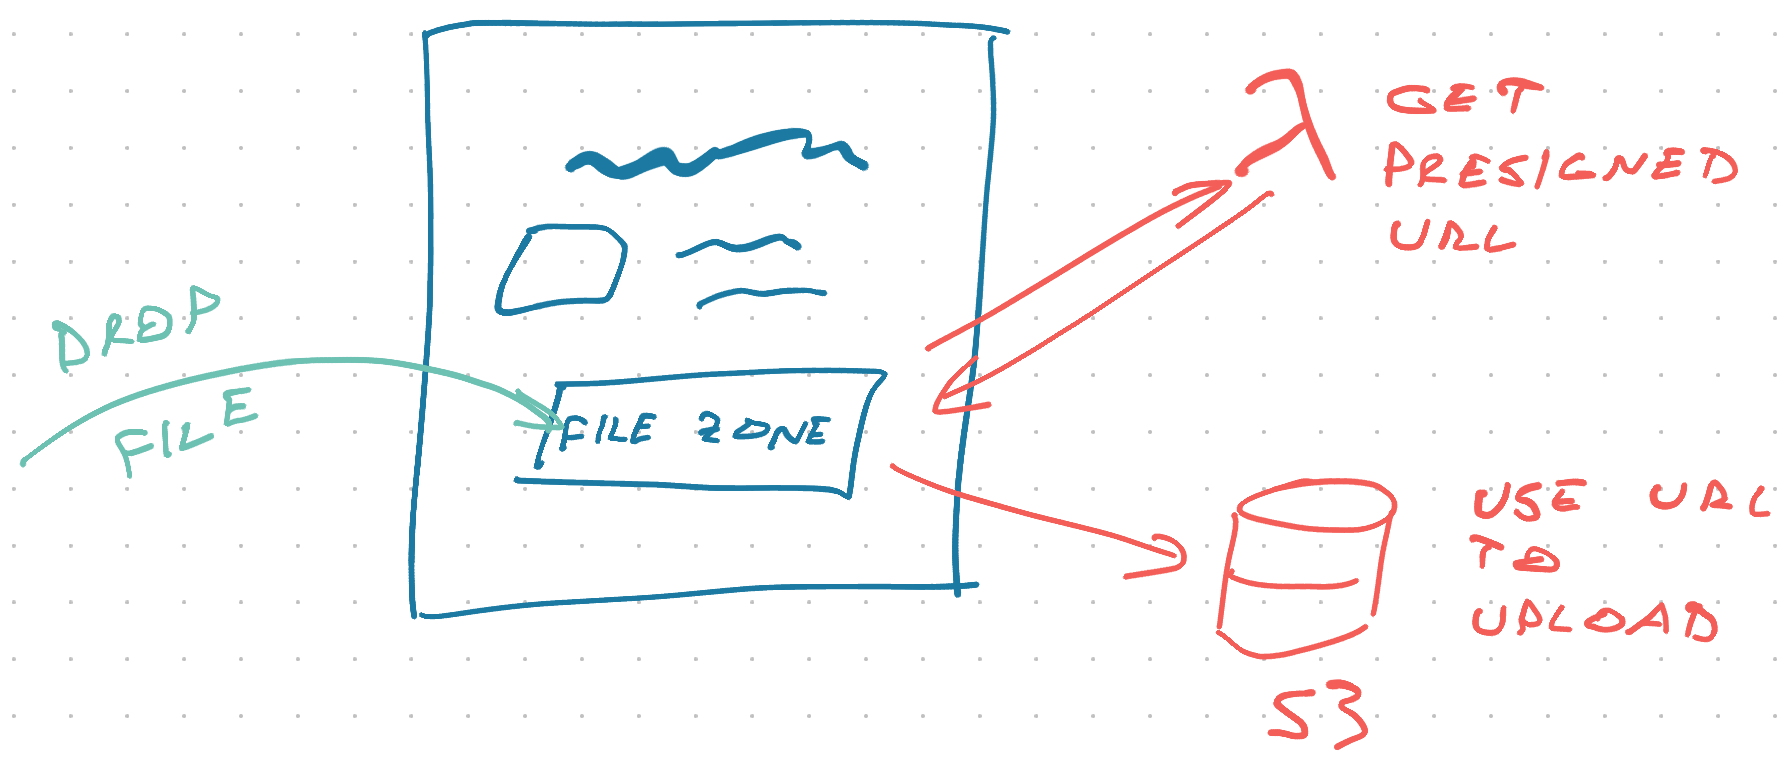 DROP
FILE
FILE ZONE
GET
PRESIGNED
URL
USE URL
TO
UPLOAD
S3